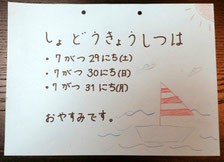 しょどうきょうしつは
・7がつ 29にち(土)
・7がつ 30にち(日)
・7がつ 31にち(月)
おやすみです。